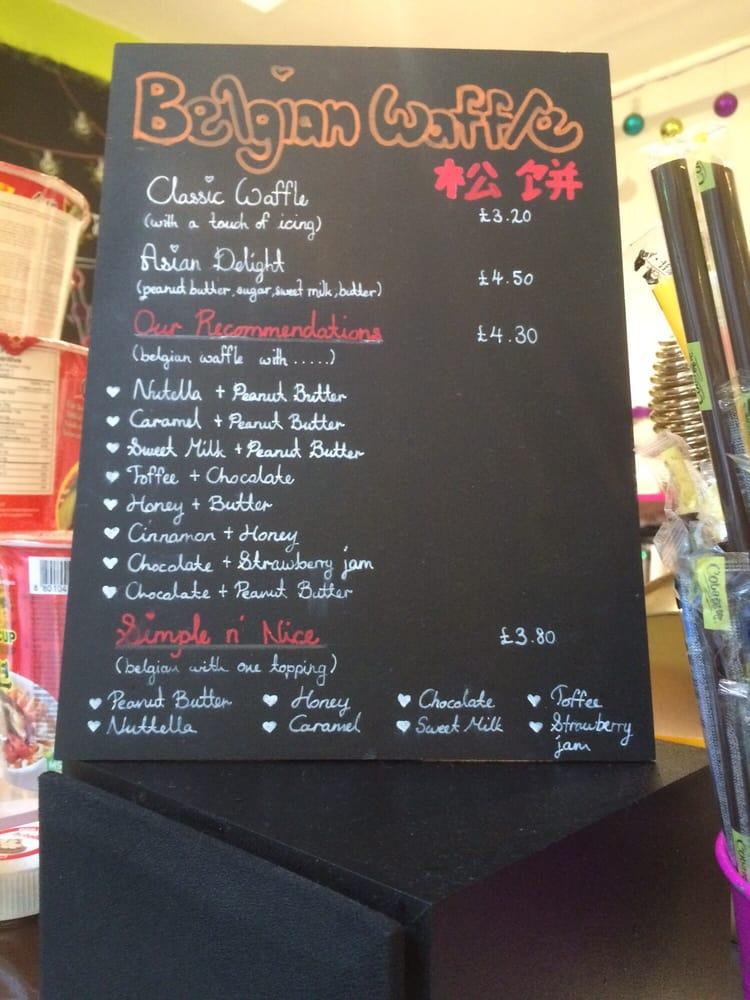 Belgian Waffle
松饼
Classic Waffle
(with a touch of icing)
£3.20
Asian Delight
(peanut butter, sugar, sweet milk, butter)
£4.50
Our Recommendations
£4.30
(belgian waffle with.....)
Nutella + Peanut Butter
Caramel + Peanut Butter
Sweet Milk + Peanut Butter
Toffee + Chocolate
Honey + Butter
Cinnamon + Honey
Chocolate + Strawberry jam
Chocolate + Peanut Butter
Simple n' Nice
£3.80
(belgian with one topping)
Peanut Butter Honey Chocolate Toffee
Nuttella Caramel Sweet Milk Strawberry
jam